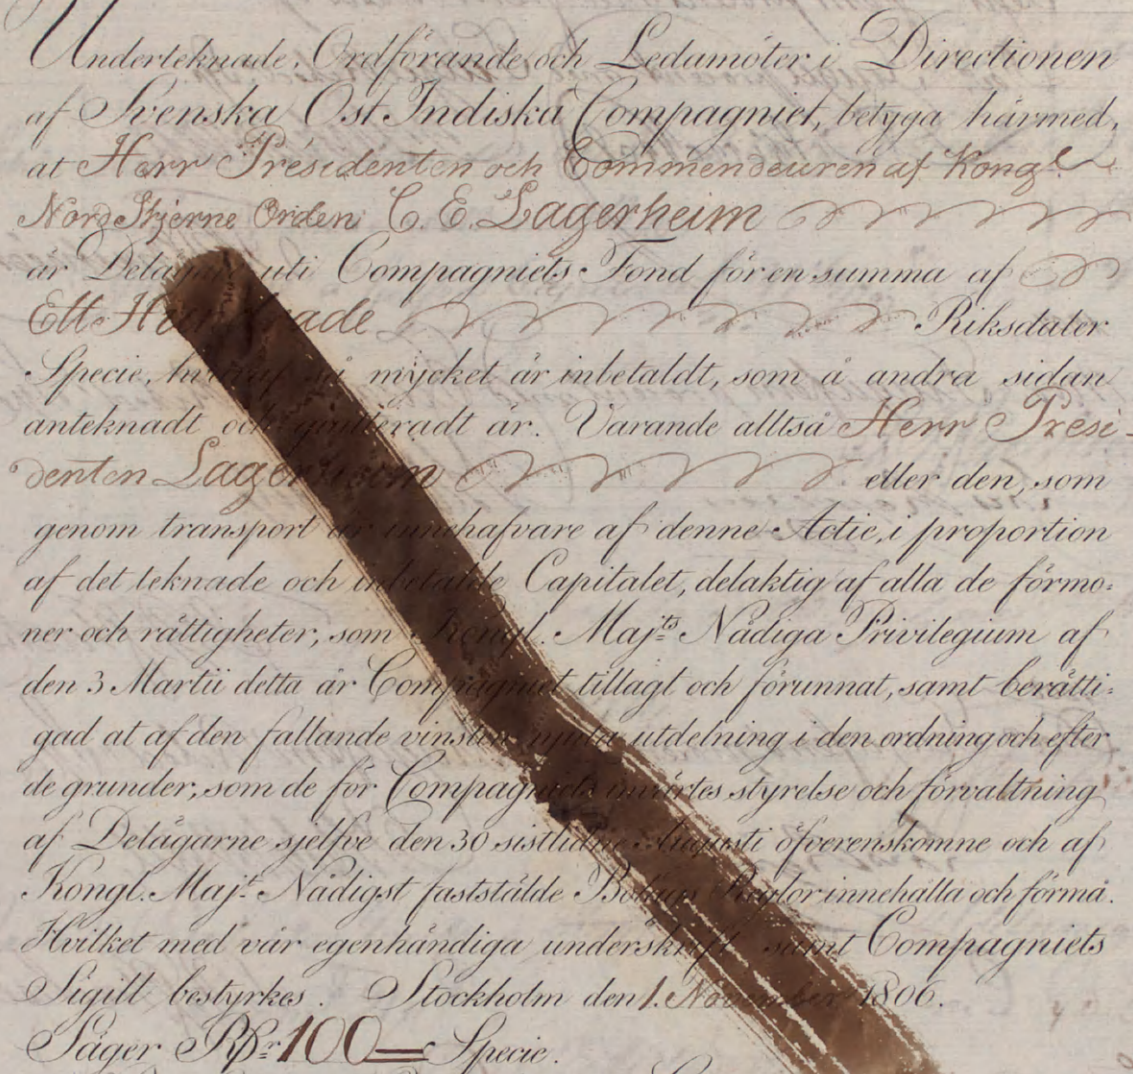 Underteknade, Ordförande och Ledamöter i Directionen
af Svenska Ost Indiska Compagniet, betyga härmed,
at Herr Presidenten och Commendeuren af Kongl
Nord Stjerne Orden C. E. Lagerheim
är Delägare uti Compagniets Fond för en summa af
Ett Hundrade Riksdaler
Specie, hvaraf så mycket är inbetaldt, som å andra sidan
anteknadt och qvitteradt är. Varande alltså Herr Presi-
denten Lagerheim eller den, som
genom transport är innehafvare af denne Actie, i proportion
af det teknade och inbetalde Capitalet, delaktig af alla de förmo:
ner och rättigheter, som Kongl. Maj:ts Nådiga Privilegium af
den 3 Martii detta år Compagniet tillagt och förunnat, samt berätti:
gad at af den fallande vinsten njuta utdelning i den ordning och efter
de grunder, som de för Compagniets inwärtes styrelse och förvaltning
af Delägarne sjelfve den 30 sistlidne Augusti öfverenskomne och af
Kongl. Maj:t Nådigst fastställde Bolags Reglor innehålla och förmå.
Hvilket med vår egenhändiga underskrift samt Compagniets
Sigill bestyrkes. Stockholm den 1. November 1806.
Säger Rdr 100 Specie.